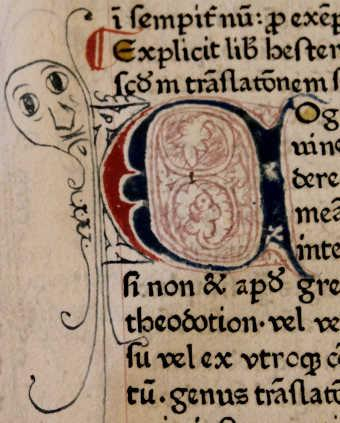 ī sempit̄nū: ꝑ exēp
Explicit lib̄ hester
scd̄m trāslatōnem s
COg
uine
dere
meā
inte
si non & apd̄ gre
theodotion. vel ve
su vel ex vtroqꝫ cō
tū. genus trāslatō